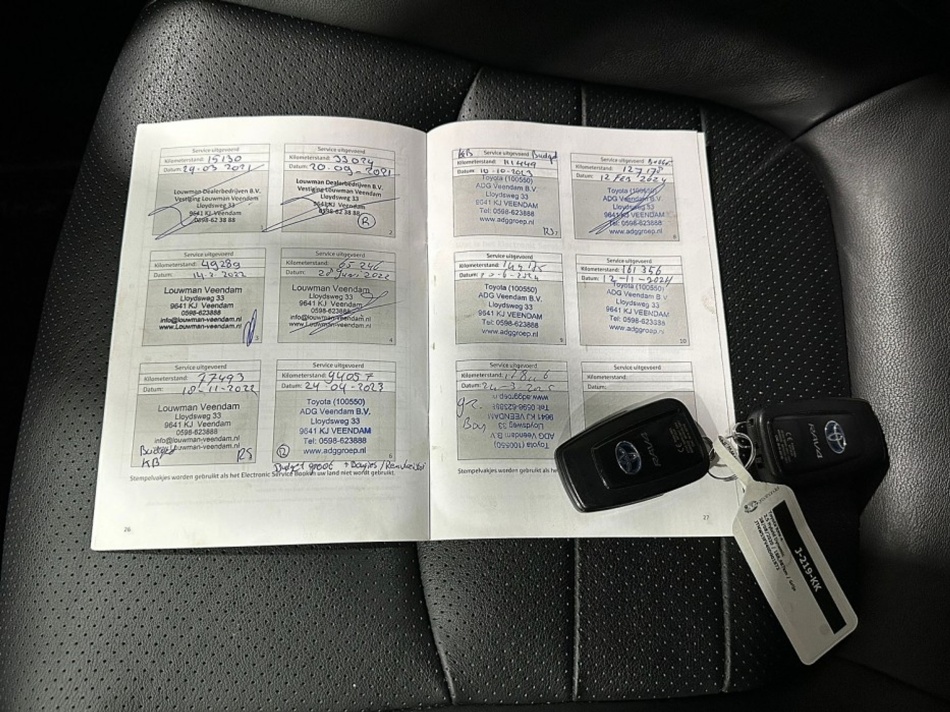 Service uitgevoerd
Kilometerstand: 15130
Datum: 29-03 2021
Louwman Dealerbedrijven B.V.
Vestiging Louwman Veendam
Lloydsweg 33
9641 KJ Veendam
0598-62 38 88
Service uitgevoerd
Kilometerstand: 33024
Datum: 20-09-2021
Louwman Dealerbedrijven B.V.
Vestiging Louwman Veendam
Lloydsweg 33
9641 KJ Veendam
0598-62 38 88
R
2
Service uitgevoerd
Kilometerstand: 49289
Datum: 14-2-2022
Louwman Veendam
Lloydsweg 33
9641 KJ Veendam
0598-623888
info@louwman-veendam.nl
www.Louwman-veendam.nl
3
Service uitgevoerd
Kilometerstand: 65246
Datum:
Louwman Veendam
Lloydsweg 33
9641 KJ Veendam
0598-623888
info@louwman-veendam.nl
www.Louwman-veendam.nl
4
Service uitgevoerd
Kilometerstand: 77493
Datum: 18-11-2022
Louwman Veendam
Lloydsweg 33
9641 KJ Veendam
0598-623888
info@louwman-veendam.nl
www.Louwman-veendam.nl
Budget
KB
RS
Service uitgevoerd
Kilometerstand: 94057
Datum: 24-04-2023
Toyota (100550)
ADG Veendam B.V.
Lloydsweg 33
9641 KJ VEENDAM
Tel: 0598-623888
www.adggroep.nl
R
6
Budget groot +
Stempelvakjes worden gebruikt als het Electronic Service Boek in uw land niet wordt gebruikt.
26
Service uitgevoerd
KB Budget
Kilometerstand: 111449
Datum: 10-10-2023
Toyota (100550)
ADG Veendam B.V.
Lloydsweg 33
9641 KJ VEENDAM
Tel: 0598-623888
www.adggroep.nl
RS
7
Service uitgevoerd
Kilometerstand: 127178
Datum: 12 Feb 2024
Toyota (100550)
ADG Veendam B.V.
Lloydsweg 33
9641 KJ VEENDAM
Tel: 0598-623888
www.adggroep.nl
8
Service uitgevoerd
Kilometerstand:
Datum:
Toyota (100550)
ADG Veendam B.V.
Lloydsweg 33
9641 KJ VEENDAM
Tel: 0598-623888
www.adggroep.nl
9
Service uitgevoerd
Kilometerstand: 161356
Datum: 12-11-2024
Toyota (100550)
ADG Veendam B.V.
Lloydsweg 33
9641 KJ VEENDAM
Tel: 0598-623888
www.adggroep.nl
10
Service uitgevoerd
Kilometerstand:
Datum: 24-3-2025
Toyota (100550)
ADG Veendam B.V.
Lloydsweg 33
9641 KJ VEENDAM
Tel: 0598-623888
www.adggroep.nl
gr.
Service uitgevoerd
Kilometerstand:
Datum:
Stempelvakjes worden gebruikt als het
27
TOYOTA
TOYOTA
J-219-KK